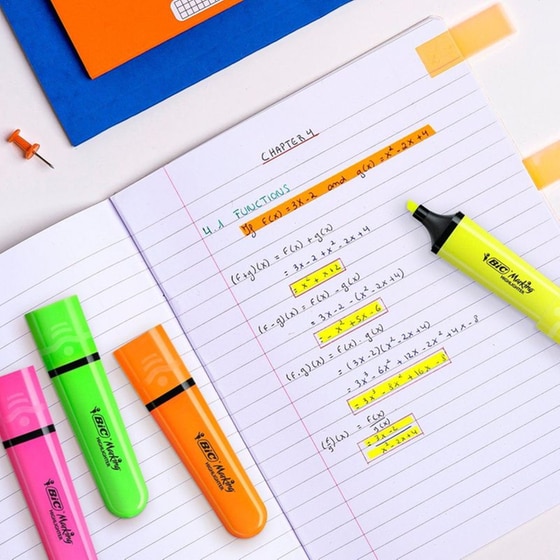 CHAPTER 4
4.1 FUNCTIONS
If F(x) = 3x-2 and g(x) = x²-2x+4
(F+g)(x) = F(x) + g(x)
= 3x-2 + x²-2x+4
= x²+x+2
(F-g)(x) = F(x) - g(x)
= 3x-2 - (x²-2x+4)
= -x²+5x-6
(F.g)(x) = F(x) . g(x)
= (3x-2)(x²-2x+4)
= 3x³-6x²+12x-2x²+4x-8
= 3x³-8x²+16x-8
(F/g)(x) = F(x)
g(x)
= 3x-2
x²-2x+4
BIC Marking
HIGHLIGHTER
BIC Marking
HIGHLIGHTER
BIC Marking
HIGHLIGHTER
BIC Marking
HIGHLIGHTER